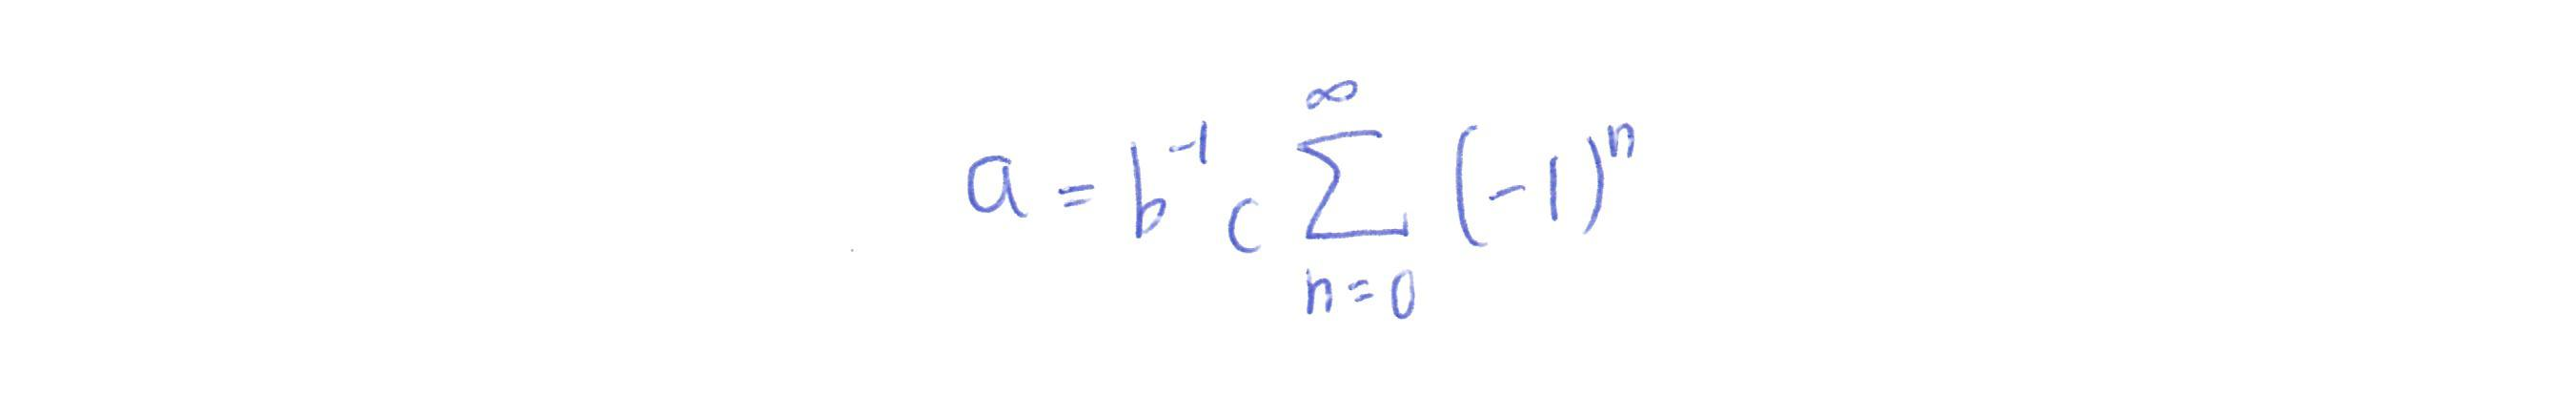 a = b⁻¹ c ∑_{n=0}^{∞} (-1)ⁿ